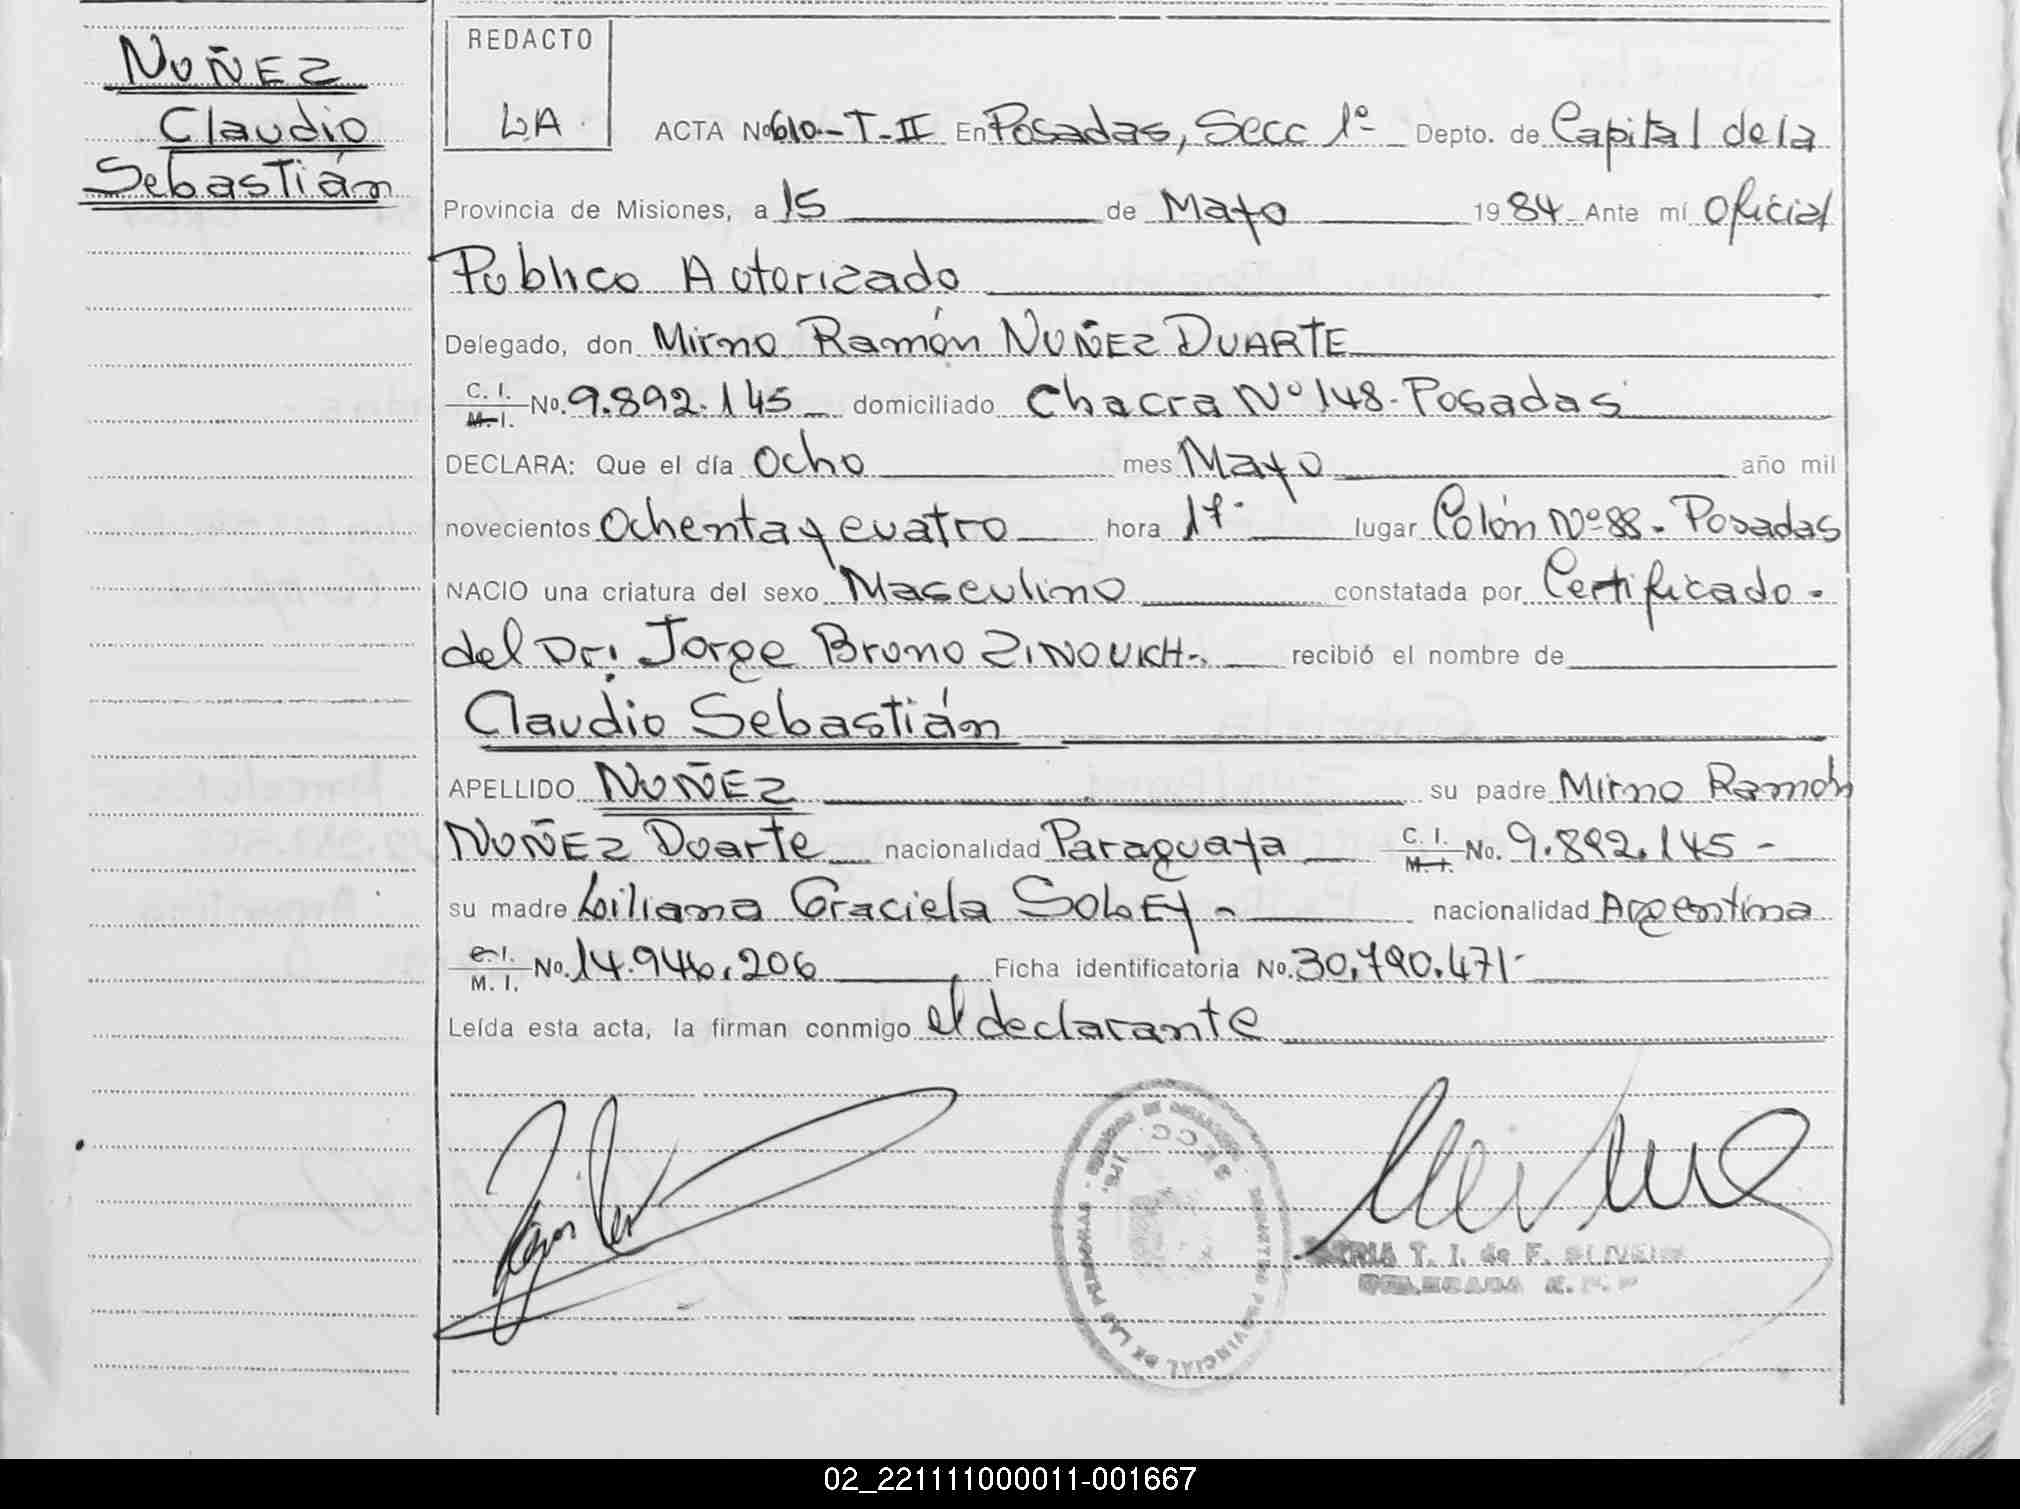 NUÑEZ
Claudio
Sebastián
REDACTO
LA.
ACTA No 610.-T-II En Posadas, Secc 1º- Depto. de Capital de la
Provincia de Misiones, a 15 de Mayo 1984 Ante mí Oficial
Publico Autorizado
Delegado, don Mirno Ramón NUÑEZ DUARTE
C. I. M. I. No. 9.892.145 domiciliado Chacra Nº 148- Posadas
DECLARA: Que el día Ocho mes Mayo año mil
novecientos Ochenta y cuatro hora 17- lugar Colón Nº 88- Posadas
NACIO una criatura del sexo Masculino constatada por Certificado-
del Dr. Jorge Bruno recibió el nombre de
Claudio Sebastián
APELLIDO NUÑEZ su padre Mirno Ramón
NUÑEZ Duarte nacionalidad Paraguaya C. I. M. I. No. 9.892.145-
su madre Liliana Graciela SOLEY- nacionalidad Argentina
C. I. M. I. No. 14.946.206 Ficha identificatoria No. 30.790.471-
Leída esta acta, la firman conmigo el declarante
SECC. 1ra.
REGISTRO PROVINCIAL DE LAS PERSONAS
T. I. de F.
02_221111000011-001667